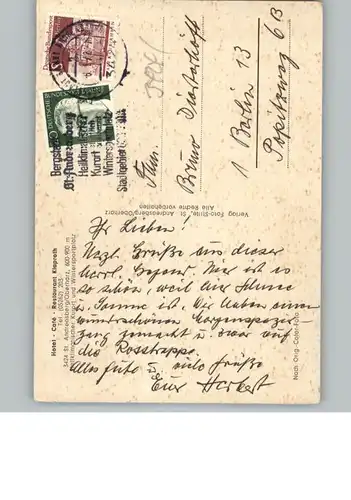 Bergstadt
St. Andreasberg
Heilklimatischer
Kurort
Wintersportplatz
DEUTSCHE BUNDESPOST
Fam.
Bruno
1 Berlin 13
6B
Verlag Foto-Stille, St. Andreasberg/Oberharz
Alle Rechte vorbehalten
Hotel - Café - Restaurant Klaproth
3424 St. Andreasberg/Oberharz, 600-900 m
Heilklimatischer Kurort und Wintersportplatz
Ihr Lieben!
Herzl. Grüße aus dieser
herrl. Gegend. Hier ist es
so schön, weil hier Schnee
u. Sonne ist. Wir haben einen
wunderschönen Morgenspazier
gang gemacht u. zwar auf
die Rosstrappe.
Alles Gute u. viele Grüße
Euer Herbert
Nach Orig.-Color-Foto